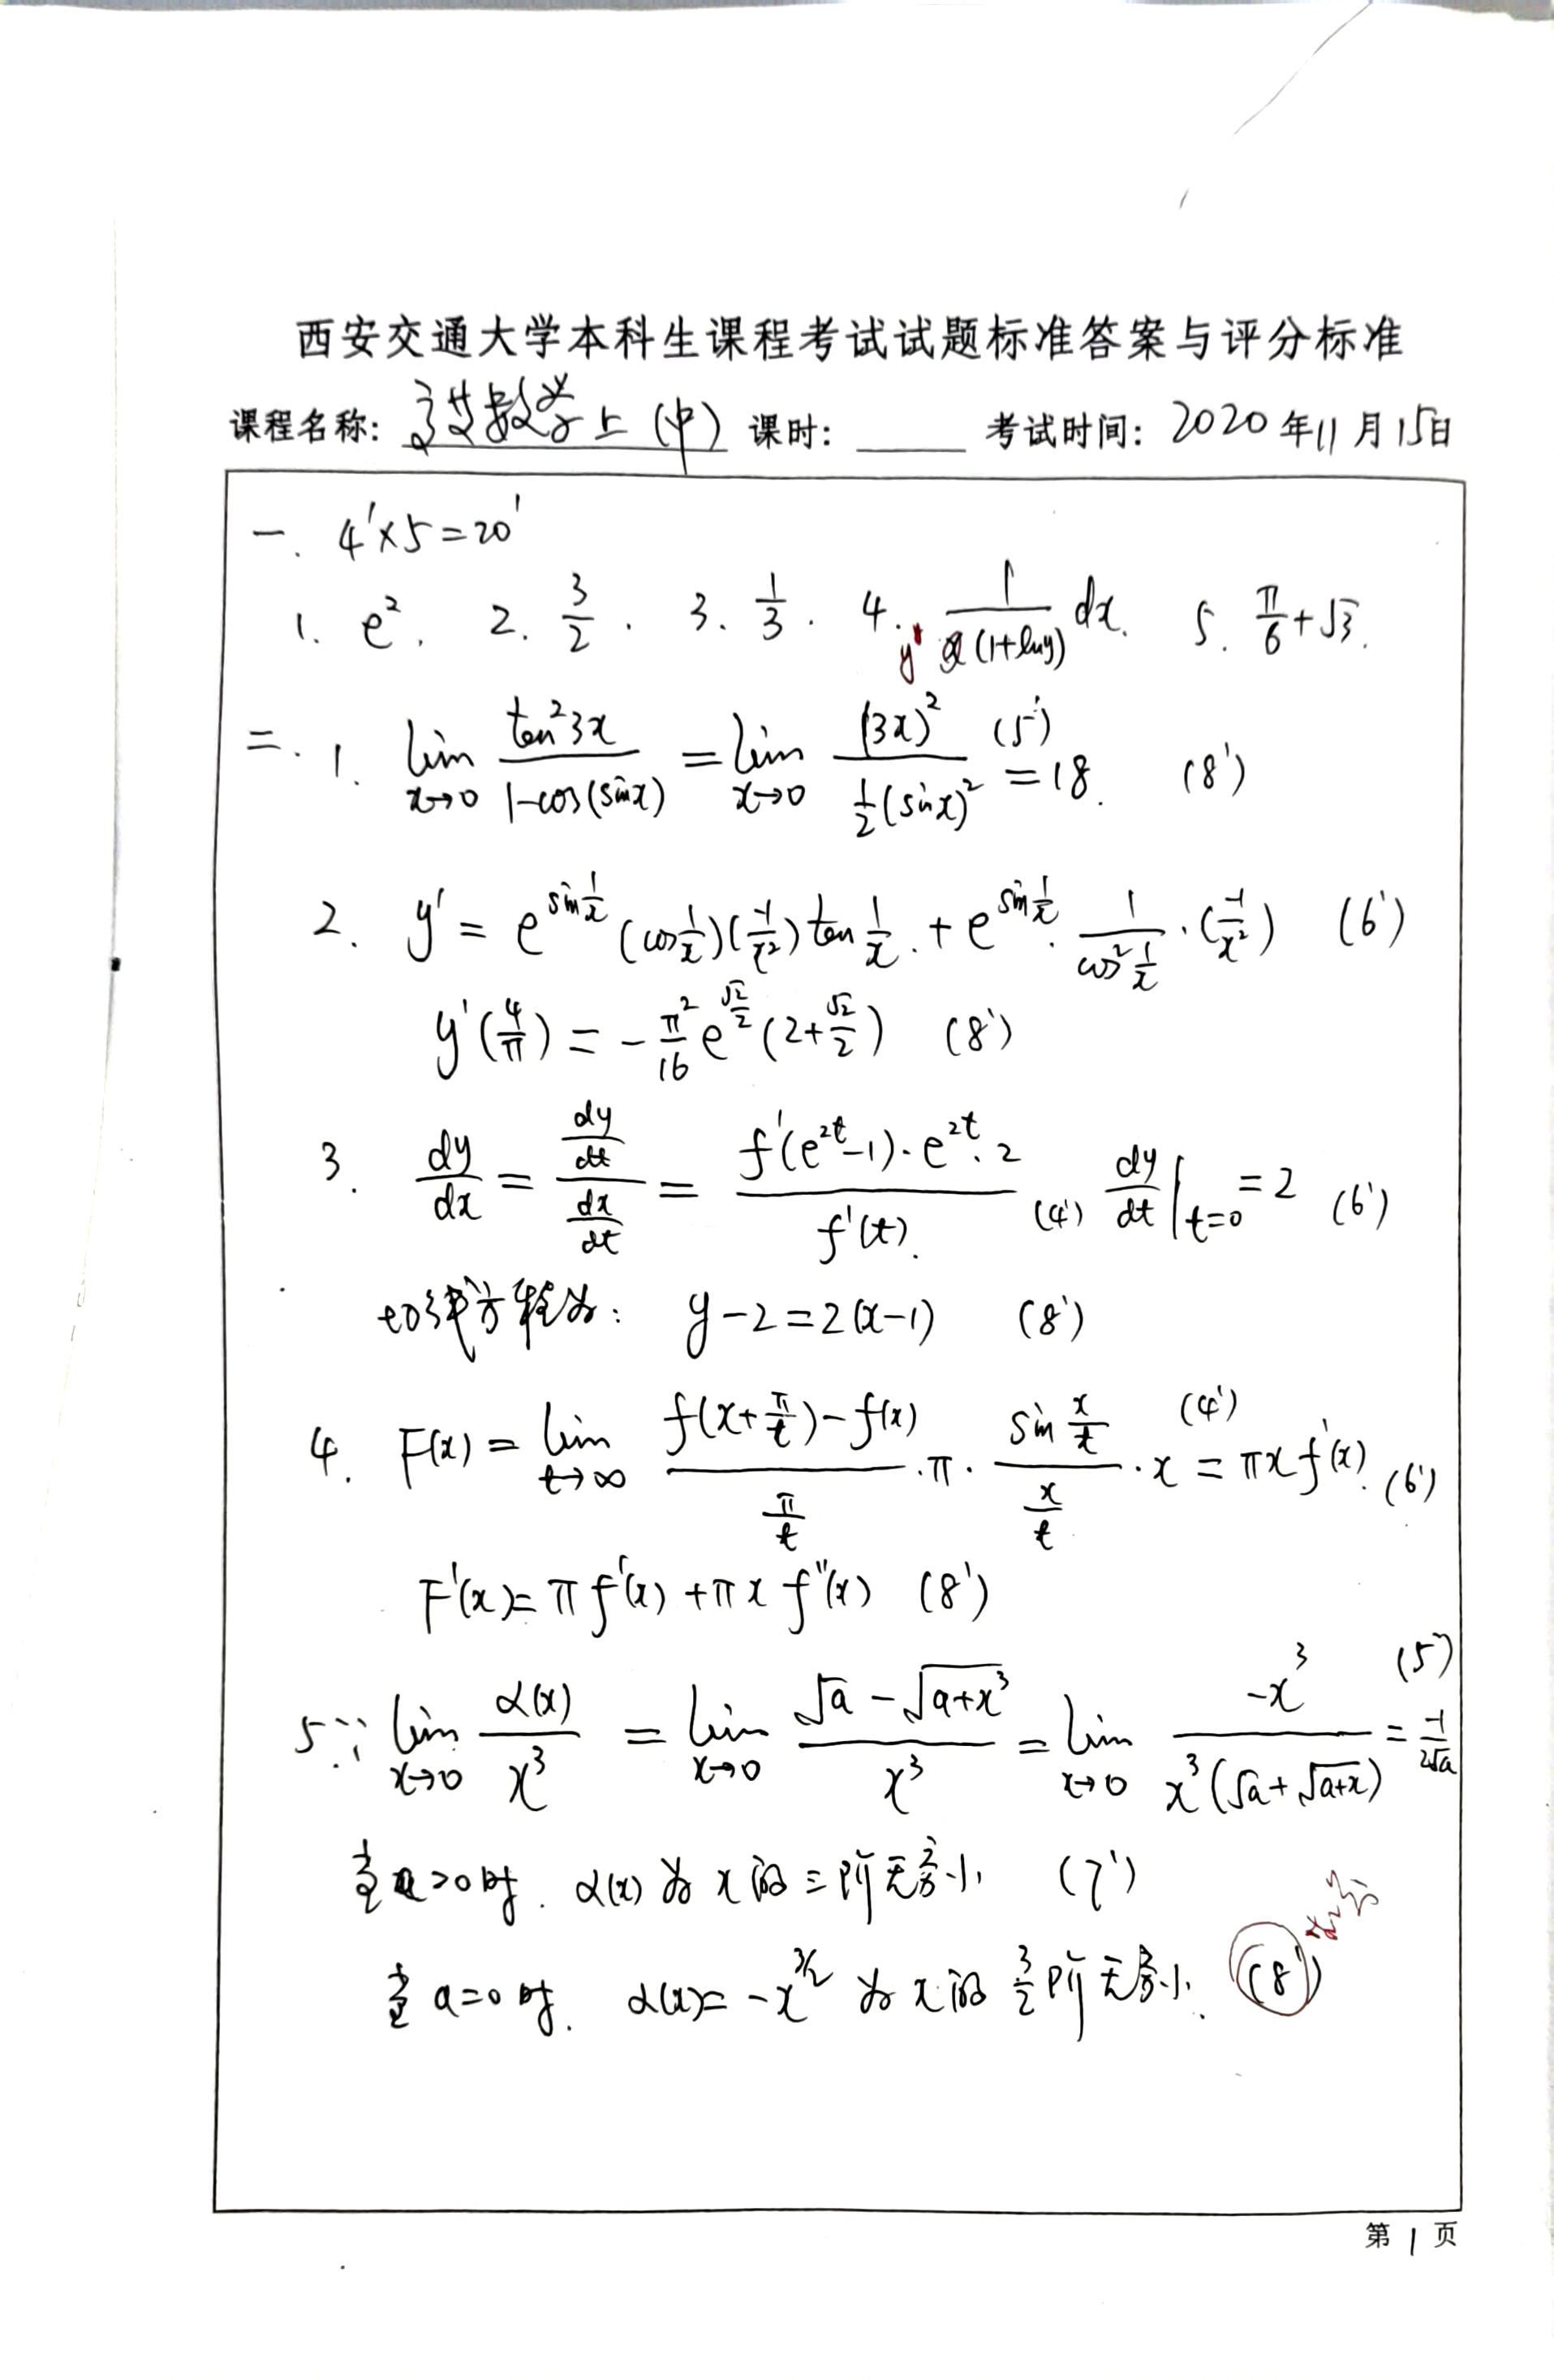 西安交通大学本科生课程考试试题标准答案与评分标准
课程名称: 高等数学上 (中) 课时: ____ 考试时间: 2020 年 11 月 15 日
一. 4'×5=20'
1. e². 2. 3/2. 3. 1/3. 4. 1/(y(1+lny)) dx. 5. π/6+√3.
二. 1. lim_{x→0} tan²3x/(1-cos(sinx)) = lim_{x→0} (3x)²/(½(sinx)²) (5') =18. (8')
2. y' = e^{sin 1/x} (cos 1/x)(-1/x²) tan 1/x. + e^{sin 1/x}. 1/(cos² 1/x) · (-1/x²) (6')
y'(4/π) = -π²/16 e^{√2/2} (2+√2/2) (8')
3. dy/dx = (dy/dt)/(dx/dt) = f'(e^{2t}-1)·e^{2t}·2 / f'(t). (4') dy/dt|_{t=0} = 2 (6')
切线方程为: y-2=2(x-1) (8')
4. F(x) = lim_{t→∞} (f(x+π/t)-f(x))/(π/t) ·π· (sin x/t)/(x/t) · x (4') = πx f'(x). (6')
F'(x)= π f'(x) +πx f''(x) (8')
5 ∵ lim_{x→0} α(x)/x³ = lim_{x→0} (√a - √(a+x³))/x³ = lim_{x→0} -x³/(x³(√a+√(a+x))) = -1/(2√a) (5')
当a>0时. α(x) 为 x 的三阶无穷小 (7')
当 a=0 时. α(x)= -x^{3/2} 为 x 的 3/2 阶无穷小. (8')
第 1 页